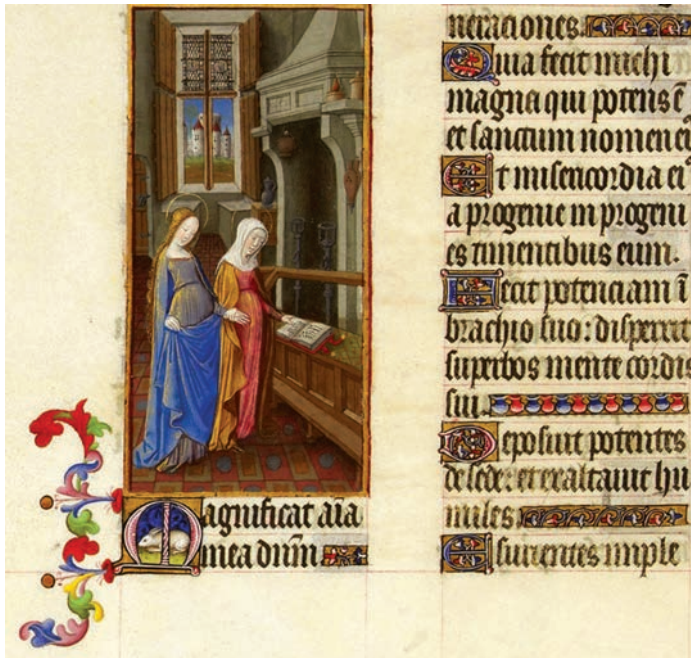 Magnificat aīa
mea dn̄m
neraciones.
Quia fecit michi
magna qui potens ē
et sanctum nomen eı̄
Et misericordia eı̄
a progenie in progeni
es timentibus eum.
Fecit potenciam ī
brachio suo: disperxit
superbos mente cordis
sui.
Deposuit potentes
de sede: et exaltauit hu
miles.
Esurientes imple